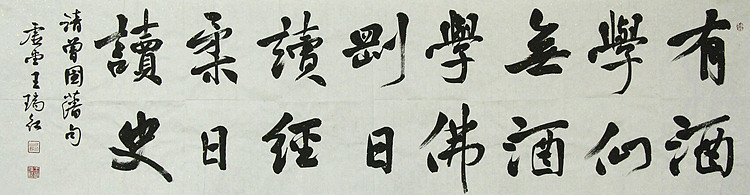 有酒
學仙
無酒
學佛
剛日
讀經
柔日
讀史
清曾國藩句
王瑞